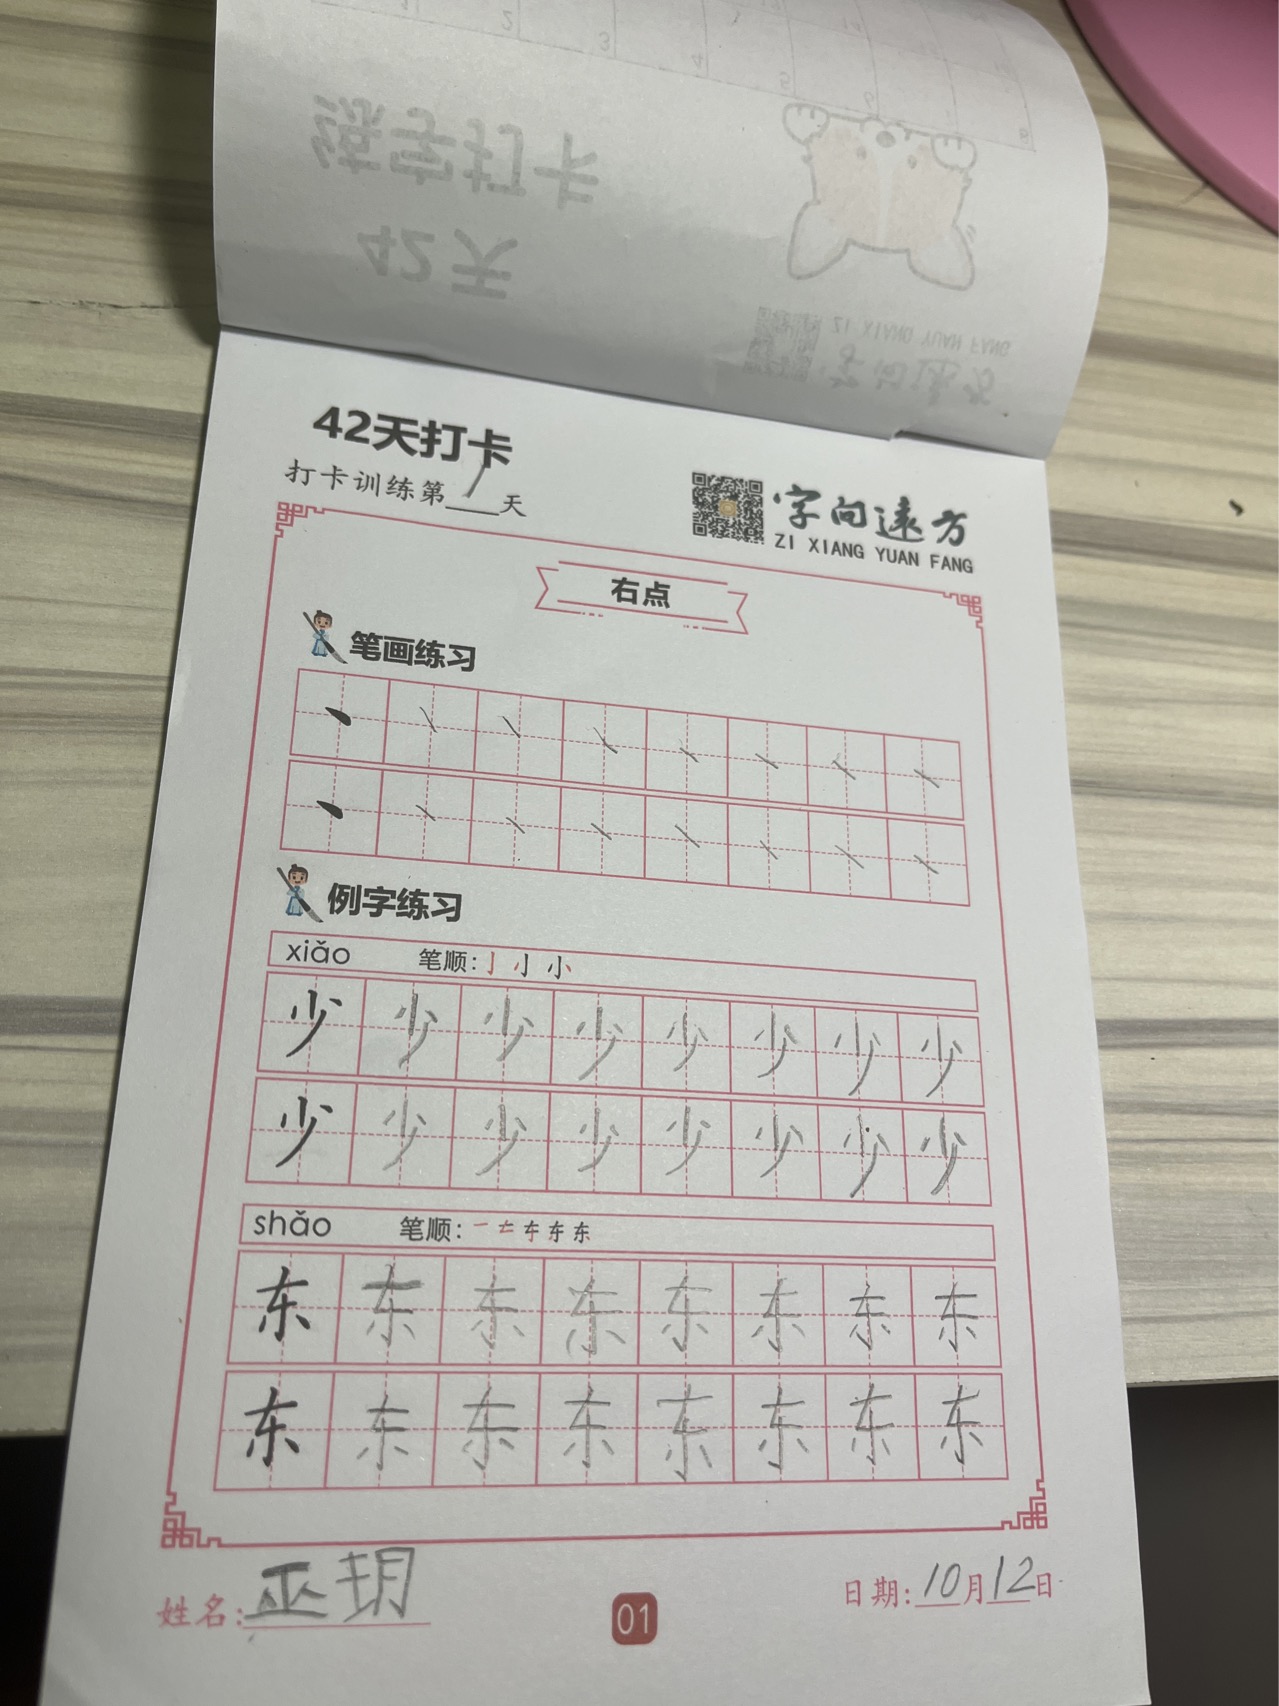 练字打卡
42天
ZI XIANG YUAN FANG
字向远方
42天打卡
打卡训练第1天
字向远方
ZI XIANG YUAN FANG
右点
笔画练习
例字练习
xiǎo 笔顺: 亅 小 小
少 少 少 少 少 少 少 少
少 少 少 少 少 少 少 少
shǎo 笔顺: 一 东 东
东 东 东 东 东 东 东 东
东 东 东 东 东 东 东 东
姓名: 巫玥
01
日期: 10月12日